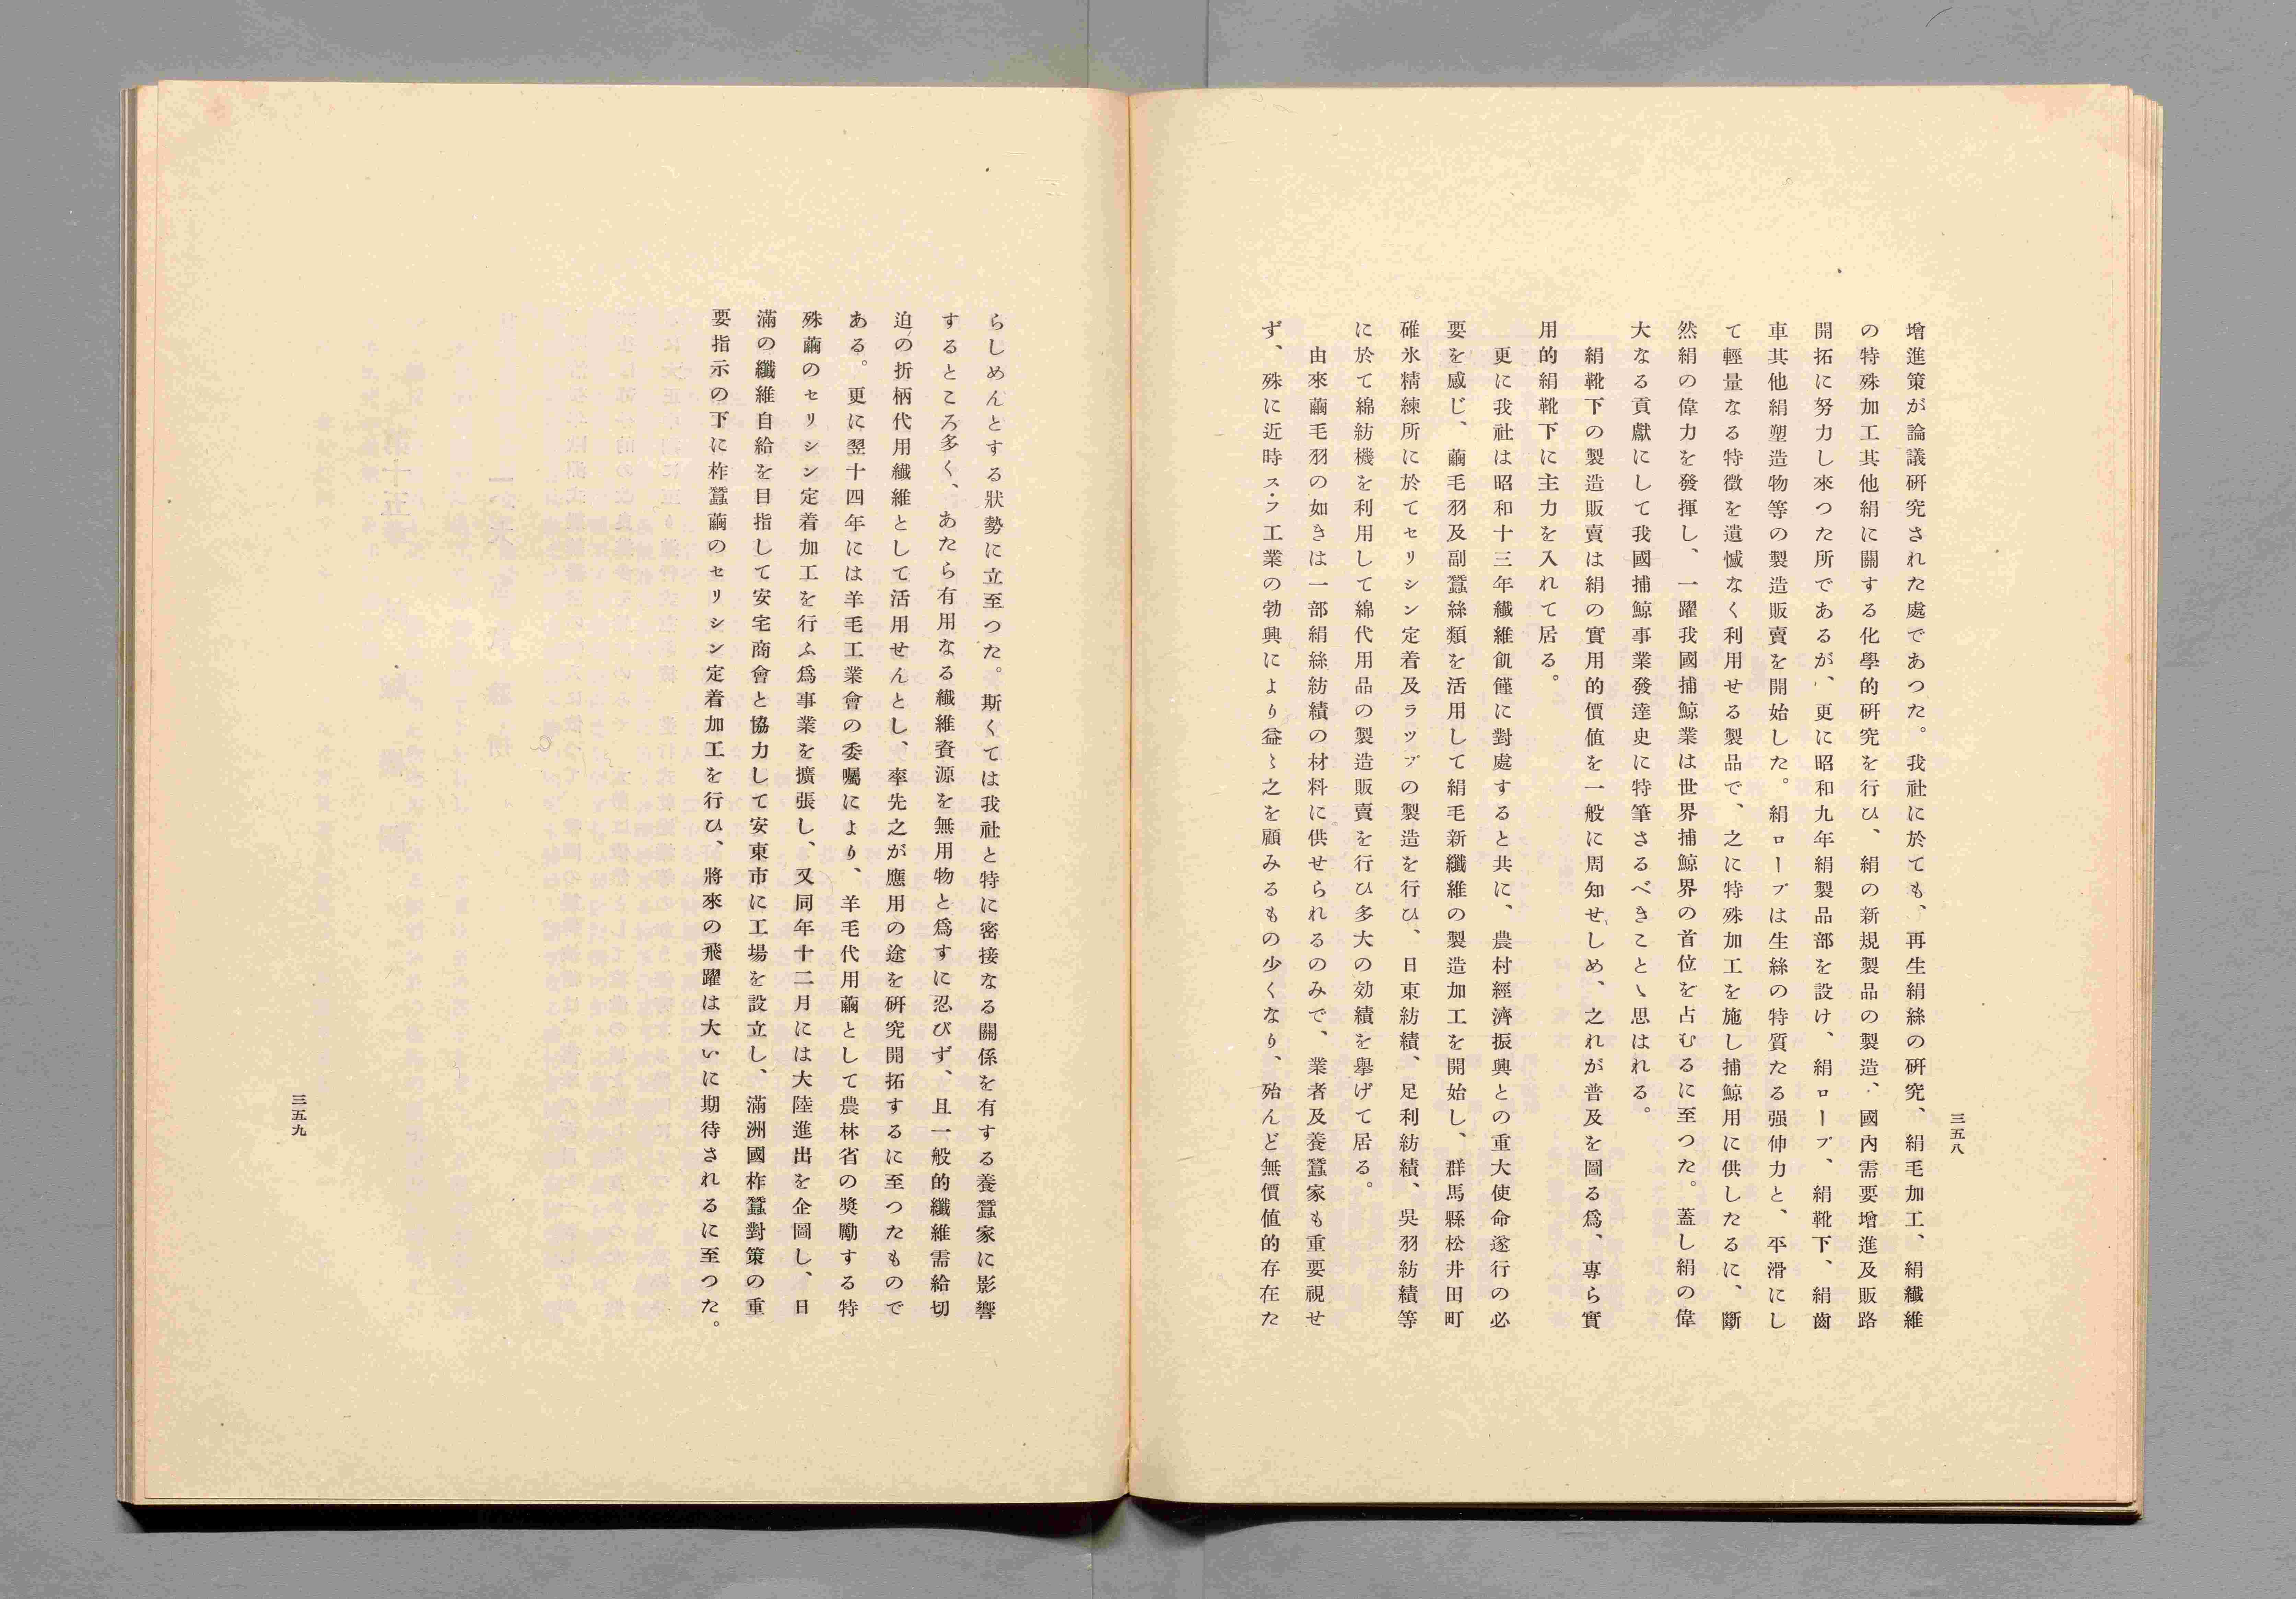 增進策が論議硏究された處であつた。我社に於ても、再生絹絲の硏究、絹毛加工、絹纖維
の特殊加工其他絹に關する化學的硏究を行ひ、絹の新規製品の製造、國內需要增進及販路
開拓に努力し來つた所であるが、更に昭和九年絹製品部を設け、絹ロープ、絹靴下、絹齒
車其他絹塑造物等の製造販賣を開始した。絹ロープは生絲の特質たる强伸力と、平滑にし
て輕量なる特徵を遺憾なく利用せる製品で、之に特殊加工を施し捕鯨用に供したるに、斷
然絹の偉力を發揮し、一躍我國捕鯨業は世界捕鯨界の首位を占むるに至つた。蓋し絹の偉
大なる貢獻にして我國捕鯨事業發達史に特筆さるべきことゝ思はれる。
絹靴下の製造販賣は絹の實用的價値を一般に周知せしめ、之れが普及を圖る爲、專ら實
用的絹靴下に主力を入れて居る。
更に我社は昭和十三年纖維飢饉に對處すると共に、農村經濟振興との重大使命遂行の必
要を感じ、繭毛羽及副蠶絲類を活用して絹毛新纖維の製造加工を開始し、群馬縣松井田町
碓氷精練所に於てセリシン定着及ラップの製造を行ひ、日東紡績、足利紡績、吳羽紡績等
に於て綿紡機を利用して綿代用品の製造販賣を行ひ多大の効績を擧げて居る。
由來繭毛羽の如きは一部絹絲紡績の材料に供せられるのみで、業者及養蠶家も重要視せ
ず、殊に近時ス・フ工業の勃興により益〻之を顧みるもの少くなり、殆んど無價値的存在た
三五八
らしめんとする狀勢に立至つた。斯くては我社と特に密接なる關係を有する養蠶家に影響
するところ多く、あたら有用なる纖維資源を無用物と爲すに忍びず、且一般的纖維需給切
迫の折柄代用纖維として活用せんとし、率先之が應用の途を硏究開拓するに至つたもので
ある。更に翌十四年には羊毛工業會の委囑により、羊毛代用繭として農林省の奬勵する特
殊繭のセリシン定着加工を行ふ爲事業を擴張し、又同年十二月には大陸進出を企圖し、日
滿の纖維自給を目指して安宅商會と協力して安東市に工場を設立し、滿洲國柞蠶對策の重
要指示の下に柞蠶繭のセリシン定着加工を行ひ、將來の飛躍は大いに期待されるに至つた。
三五九